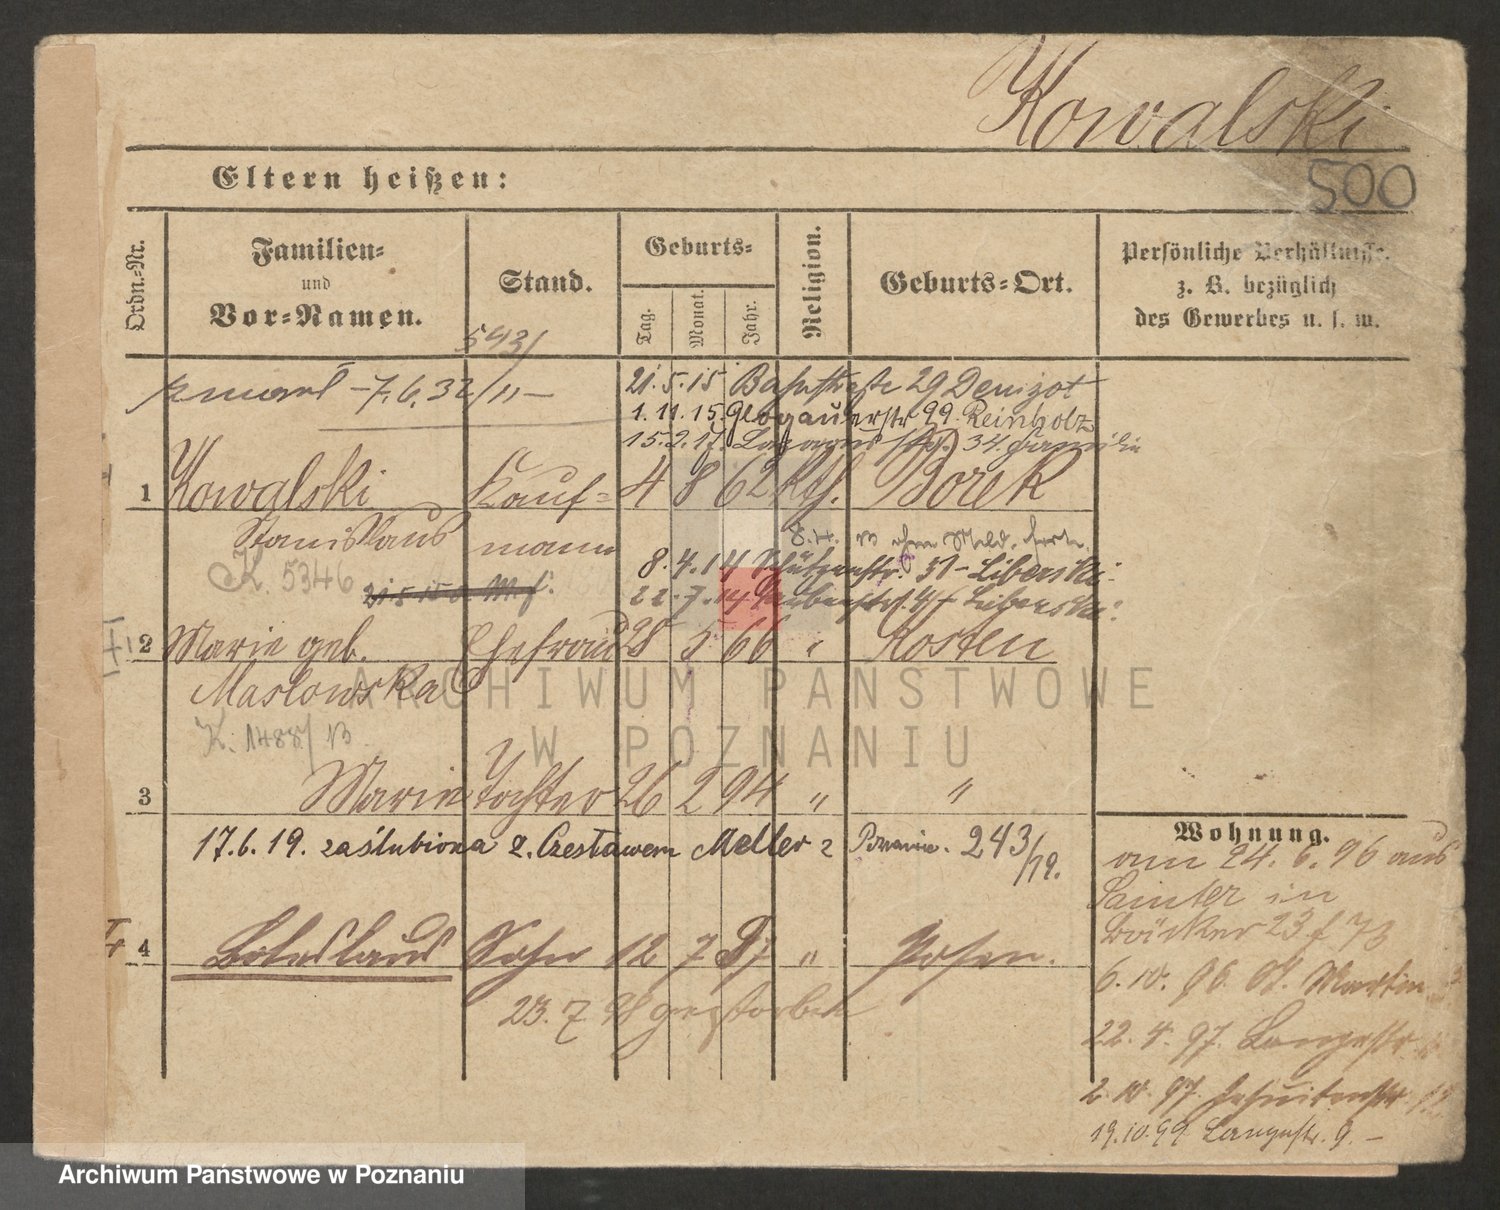 Kowalski
500
Eltern heißen:
Ordn.-Nr.
Familien-
und
Vor-Namen.
Stand.
Geburts-
Tag.
Monat.
Jahr.
Religion.
Geburts-Ort.
Persönliche Verhältnisse.
z. B. bezüglich
des Gewerbes u. s. w.
543/
zmarł - 7.6.32
21.5.15 29 Denizot
1.11.15. Glogauerstr 99. Reinholz
15.2.17. 34.
1 Kowalski Kauf= 4 8 62 kth. Borek
Stanislaus mann
8.4.
K. 5346
8.4.14 Schützenstr. 31 - Liberski
21.5.15
22.7.14
2 Marie geb. Ehefrau 28 5 66 " Kosten
Masłowska
K. 1488/
ARCHIWUM PAŃSTWOWE
W POZNANIU
3 Marie Tochter 26 2 94 " "
17.6.19. zaślubiona z. Czesławem Meller z 243/19.
Wohnung.
am 24.6.96 aus
Samter in
4 Boleslaus Sohn 12 7 97 " Posen.
23.7.98 gestorben
6.10.96. St. Martin
22.4.97. Langestr
2.10.97. Jesuitenstr 12
19.10.99 Langestr. 9. -
Archiwum Państwowe w Poznaniu